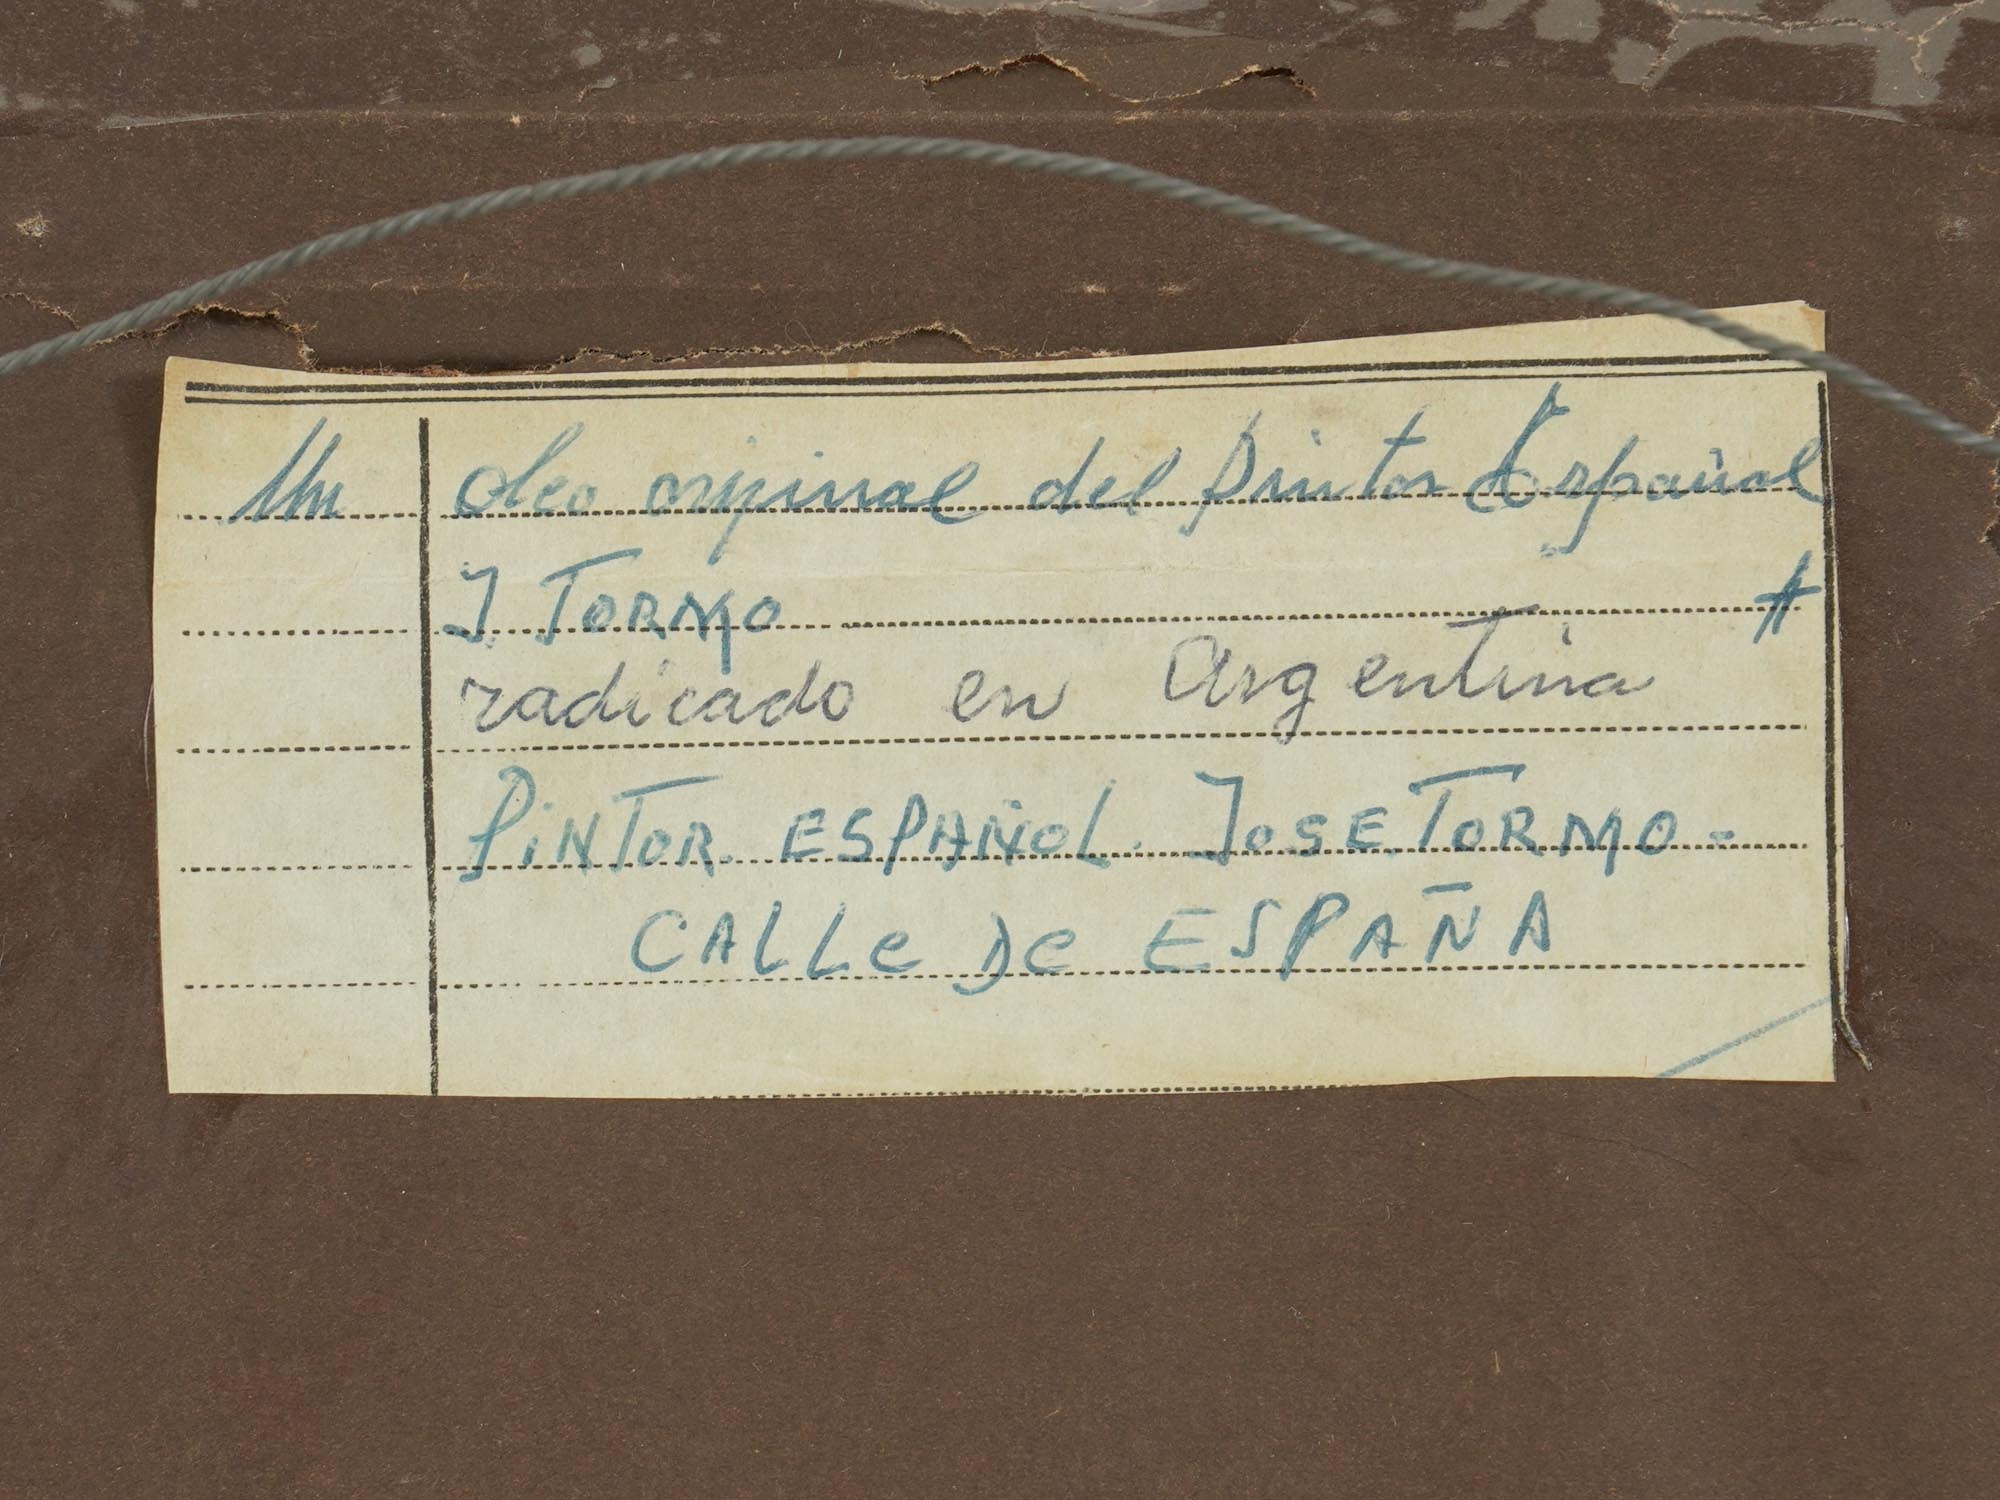 Un oleo orijinal del pintor Español
J. TORMO
radicado en Argentina
PiNTOR. ESPAÑOL. JOSE TORMO -
CALLe De ESPAÑA